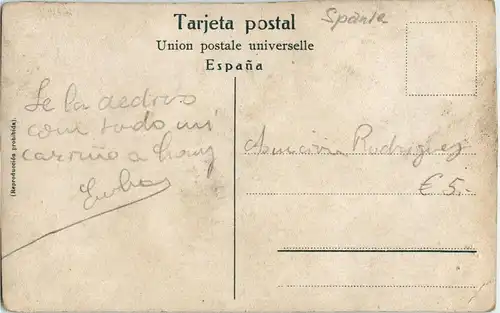 Tarjeta postal
Spanie
Union postale universelle
España
Se la dedico
com todo mi
cariño a
(Reproducción prohibida)
Asunción Rodriguez
€ 5.-